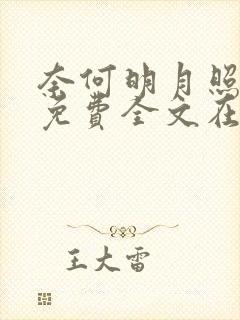 奈何明月照
免费全文在
王大雷